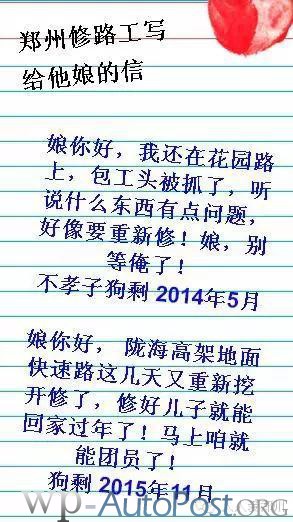 郑州修路工写
给他娘的信
娘你好，我还在花园路
上，包工头被抓了，听
说什么东西有点问题，
好像要重新修！娘，别
等俺了！
不孝子狗剩 2014年5月
娘你好， 陇海高架地面
快速路这几天又重新挖
开修了，修好儿子就能
回家过年了！马上咱就
能团员了！
狗剩 2015年11月
wp-AutoPost.org